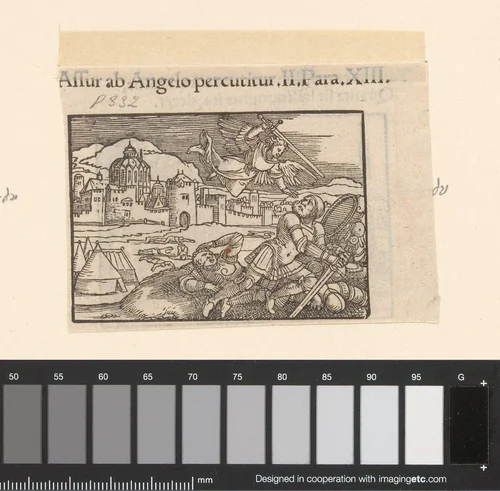 Assur ab Angelo percutitur. II. Para. XIII.
P 332
50 55 60 65 70 75 80 85 90 95 G
mm
Designed in cooperation with imagingetc.com